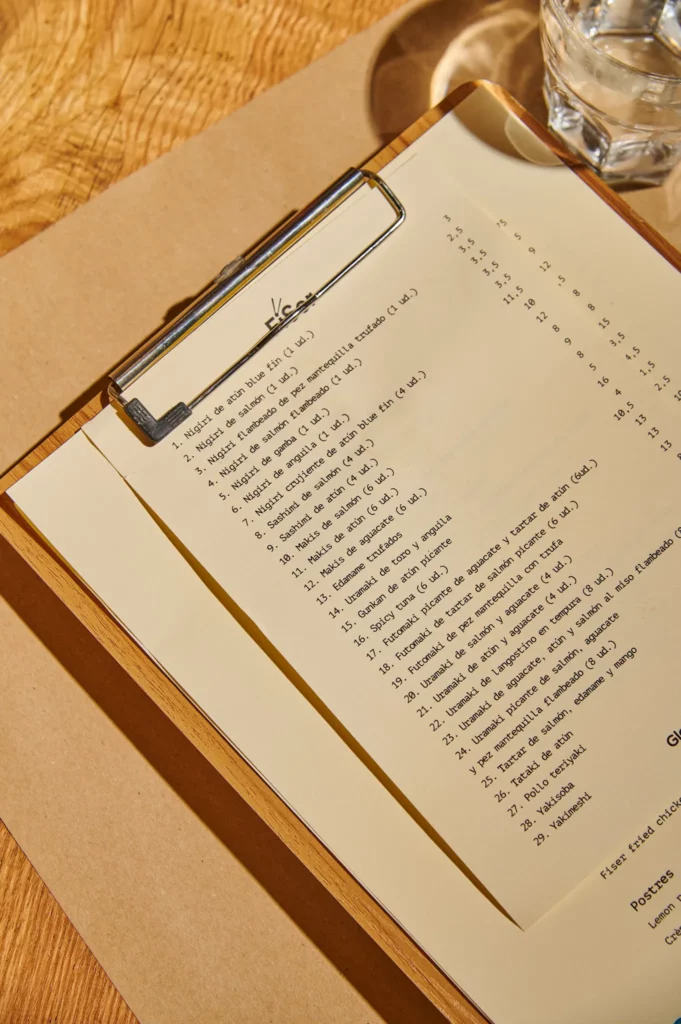 Fiser
1. Nigiri de atún blue fin (1 ud.)
2. Nigiri de salmón (1 ud.)
3. Nigiri flambeado de pez mantequilla trufado (1 ud.)
4. Nigiri de salmón flambeado (1 ud.)
5. Nigiri de gamba (1 ud.)
6. Nigiri de anguila (1 ud.)
7. Nigiri crujiente de atún blue fin (4 ud.)
8. Sashimi de salmón (4 ud.)
9. Sashimi de atún (4 ud.)
10. Makis de salmón (6 ud.)
11. Makis de atún (6 ud.)
12. Makis de aguacate (6 ud.)
13. Edamame trufados
14. Uramaki de toro y anguila
15. Gunkan de atún picante
16. Spicy tuna (6 ud.)
17. Futomaki picante de aguacate y tartar de atún (6ud.)
18. Futomaki de tartar de salmón picante (6 ud.)
19. Futomaki de pez mantequilla con trufa
20. Uramaki de salmón y aguacate (4 ud.)
21. Uramaki de atún y aguacate (4 ud.)
22. Uramaki de langostino en tempura (8 ud.)
23. Uramaki de aguacate, atún y salmón al miso flambeado
24. Uramaki picante de salmón, aguacate
y pez mantequilla flambeado (8 ud.)
25. Tartar de salmón, edamame y mango
26. Tataki de atún
27. Pollo teriyaki
28. Yakisoba
29. Yakimeshi
3
2,5
3,5
3,5
3,5
11,5
10
12
8
9
8
5
16
4
10,5
13
13
13
5
5
9
12
5
8
8
15
3,5
4,5
1,5
2,5
Fiser fried
Postres
Lemon